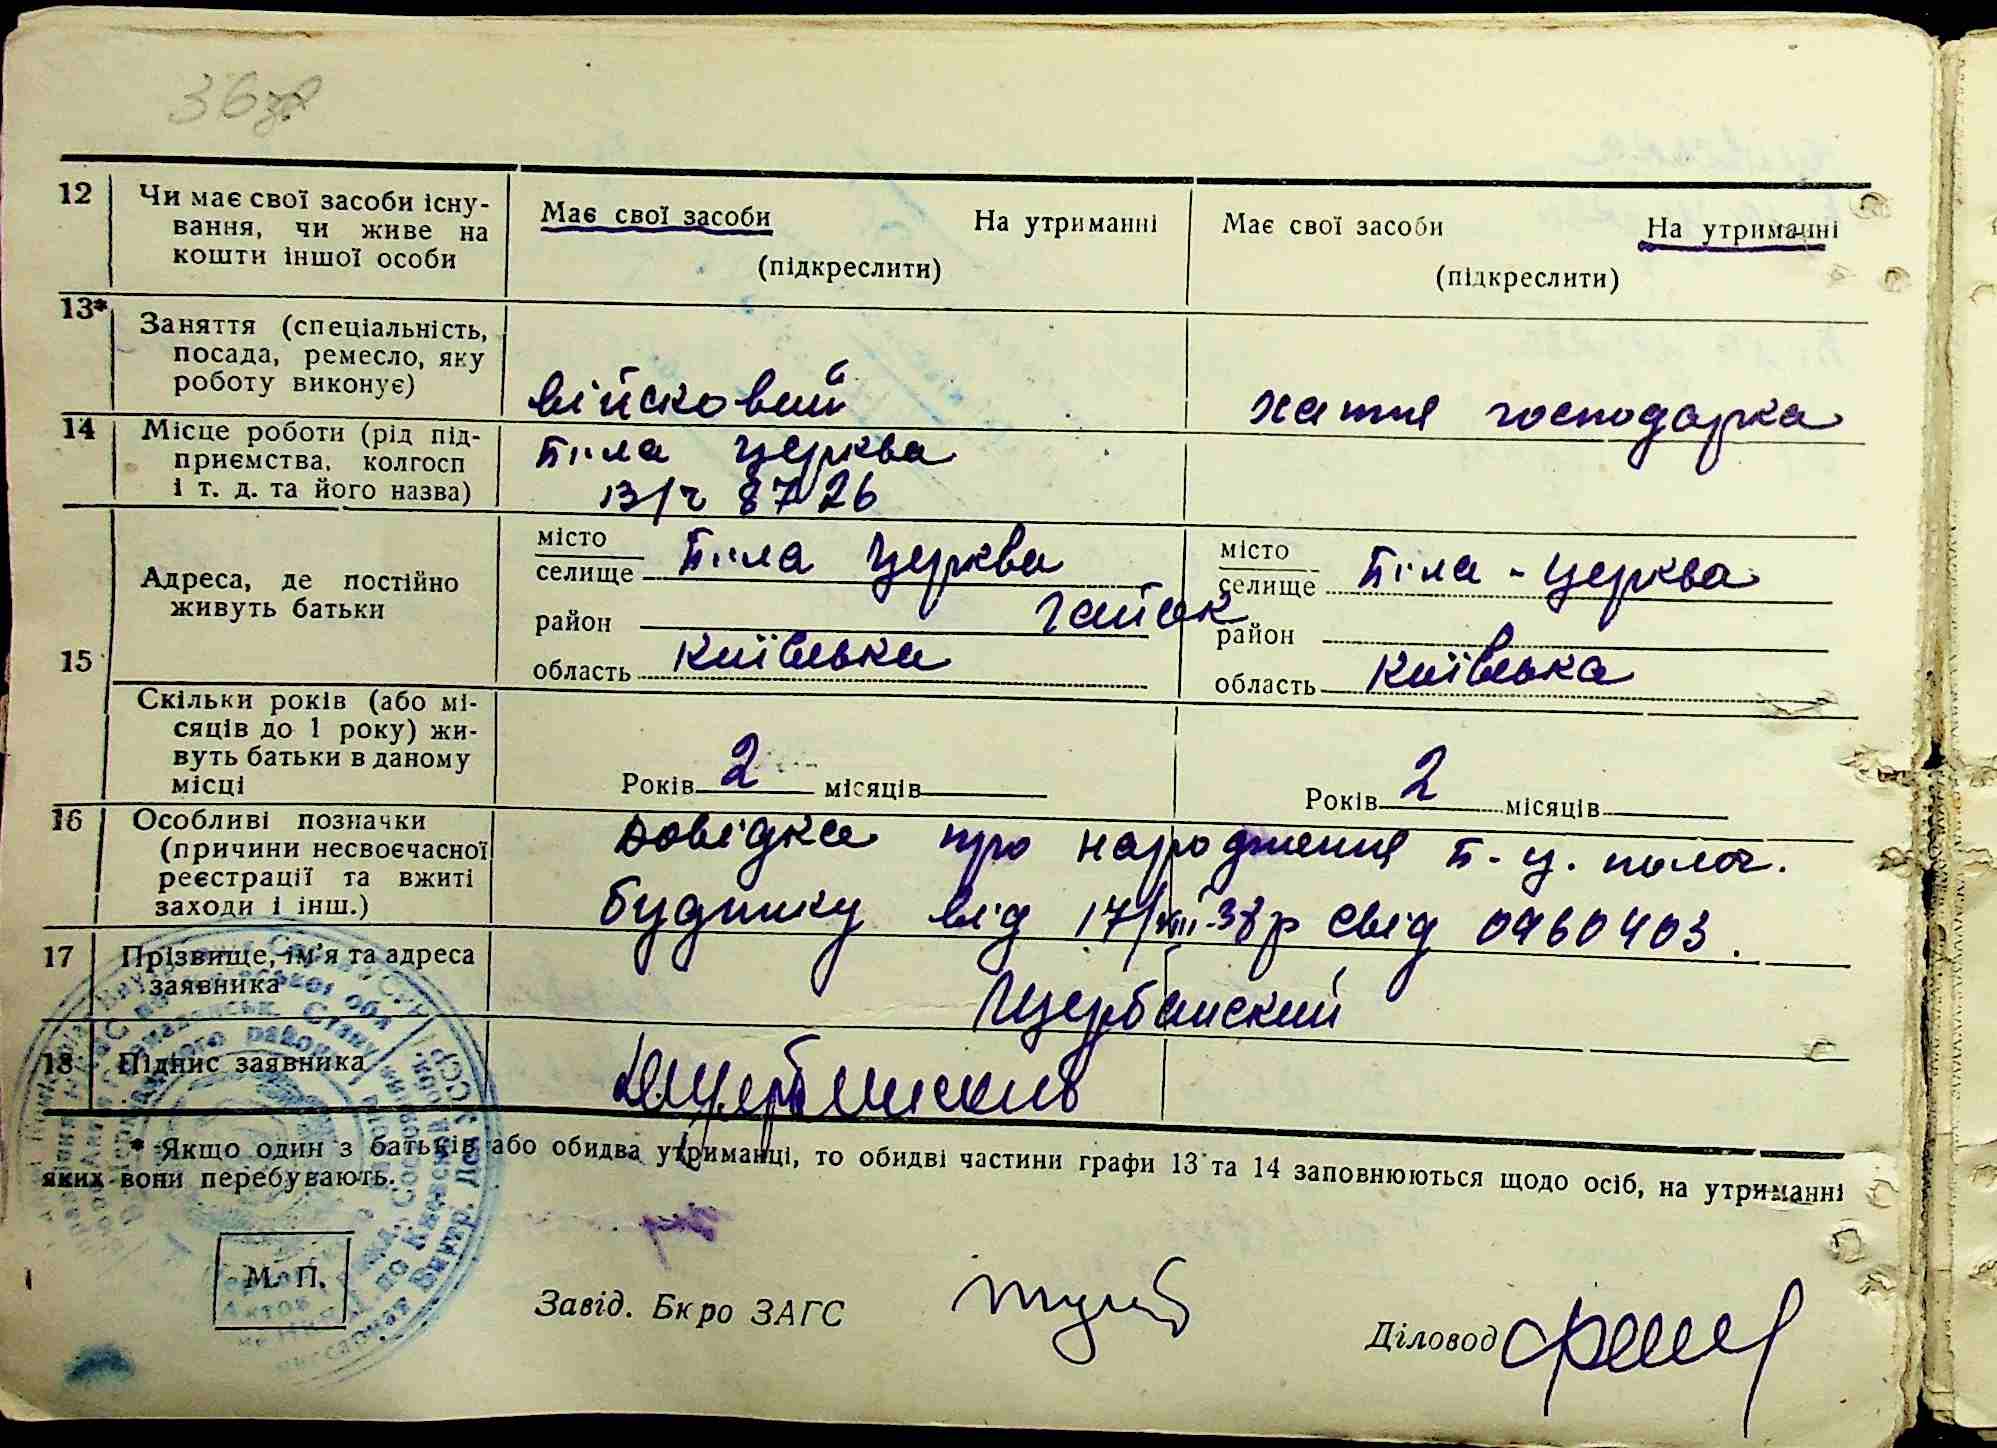 36 зв
12 Чи має свої засоби існу-
вання, чи живе на
кошти іншої особи
Має свої засоби На утриманні
(підкреслити)
Має свої засоби На утриманні
(підкреслити)
13* Заняття (спеціальність,
посада, ремесло, яку
роботу виконує)
військовий
хатня господарка
14 Місце роботи (рід під-
приємства, колгосп
і т. д. та його назва)
Біла Церква
в/ч 8726
15 Адреса, де постійно
живуть батьки
місто
селище Біла Церква
район Гайок
область Київська
місто
селище Біла-Церква
район
область Київська
Скільки років (або мі-
сяців до 1 року) жи-
вуть батьки в даному
місці
Років 2 місяців
Років 2 місяців
16 Особливі позначки
(причини несвоєчасної
реєстрації та вжиті
заходи і інш.)
Довідка про народження Б-Ц. полог.
будинку від 17/XII-38р свід 0960403.
17 Прізвище, ім'я та адреса
заявника
Щербинский
18 Підпис заявника
* Якщо один з батьків або обидва утриманці, то обидві частини графи 13 та 14 заповнюються щодо осіб, на утриманні
яких вони перебувають.
М. П.
Завід. Бюро ЗАГС
Діловод